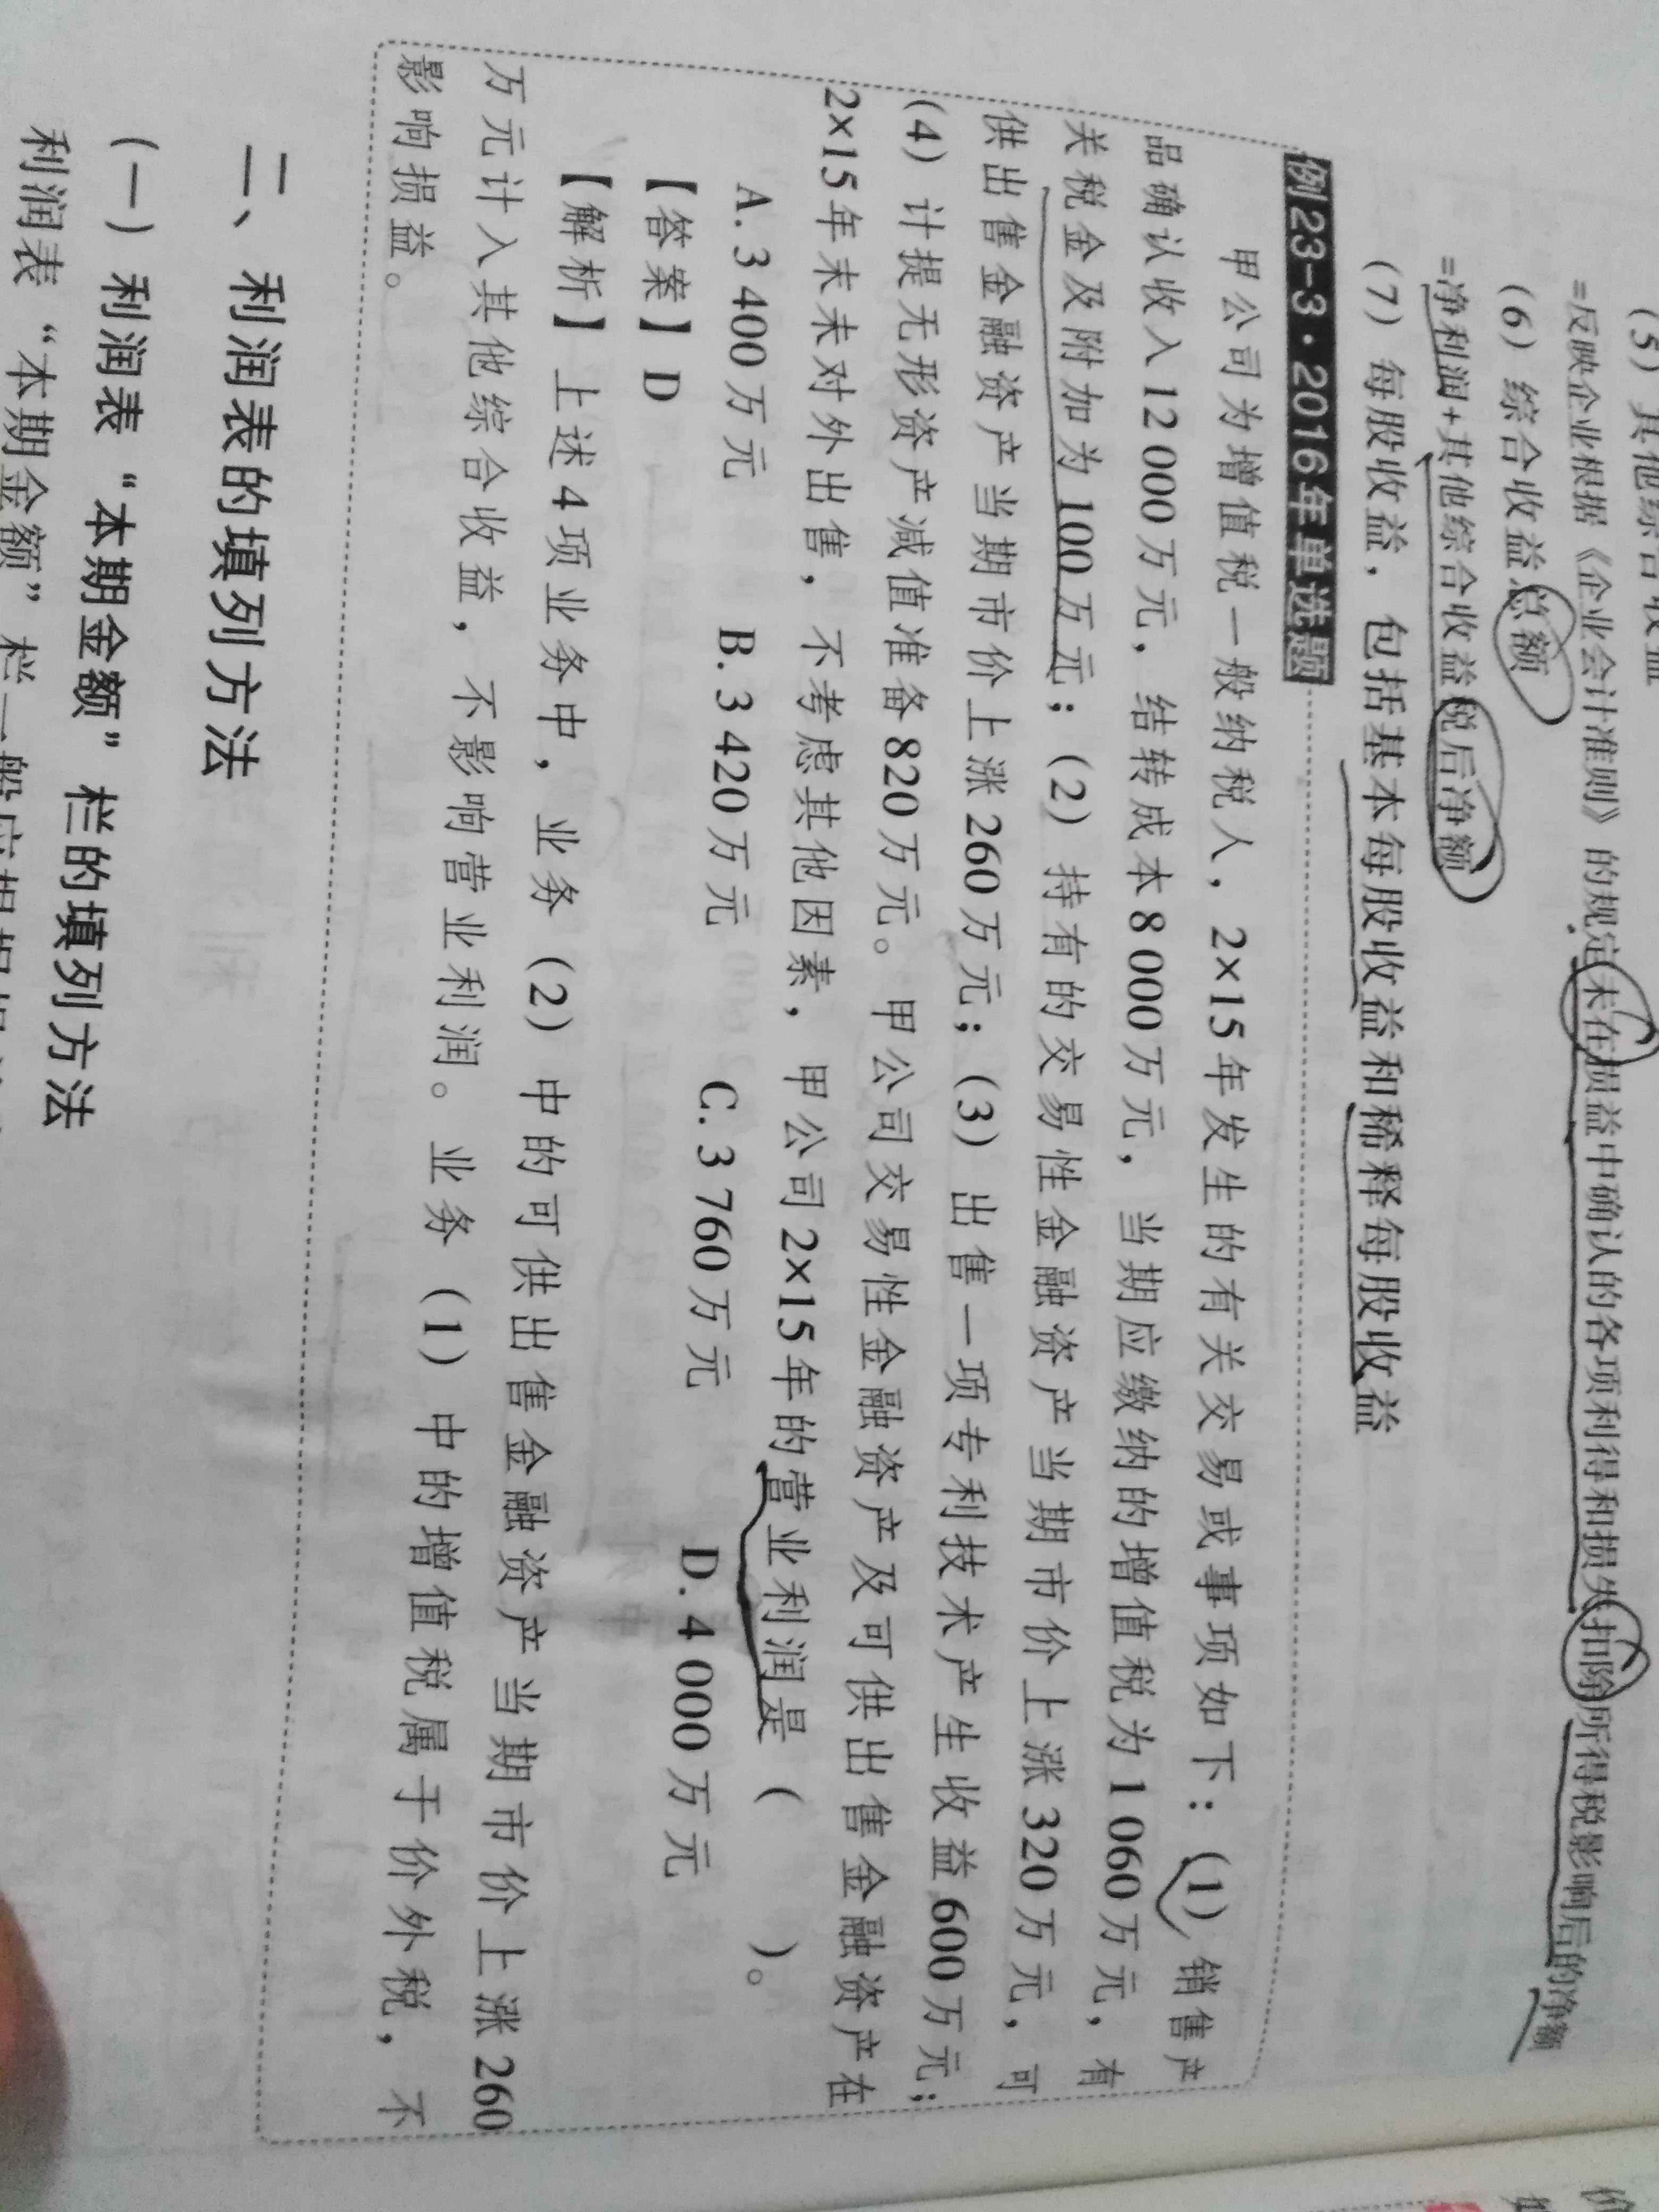 （5）其他综合收益
=反映企业根据《企业会计准则》的规定未在损益中确认的各项利得和损失扣除所得税影响后的净额
（6）综合收益总额
=净利润+其他综合收益税后净额
（7）每股收益，包括基本每股收益和稀释每股收益
例23-3·2016年单选题
甲公司为增值税一般纳税人，2×15年发生的有关交易或事项如下：（1）销售产
品确认收入12 000万元，结转成本8 000万元，当期应缴纳的增值税为1 060万元，有
关税金及附加为100万元；（2）持有的交易性金融资产当期市价上涨320万元，可
供出售金融资产当期市价上涨260万元；（3）出售一项专利技术产生收益600万元；
（4）计提无形资产减值准备820万元。甲公司交易性金融资产及可供出售金融资产在
2×15年末未对外出售，不考虑其他因素，甲公司2×15年的营业利润是（　　）。
A. 3 400万元　B. 3 420万元　C. 3 760万元　D. 4 000万元
【答案】D
【解析】上述4项业务中，业务（2）中的可供出售金融资产当期市价上涨260
万元计入其他综合收益，不影响营业利润。业务（1）中的增值税属于价外税，不
影响损益。
二、利润表的填列方法
（一）利润表“本期金额”栏的填列方法
利润表“本期金额”栏一般应根据损